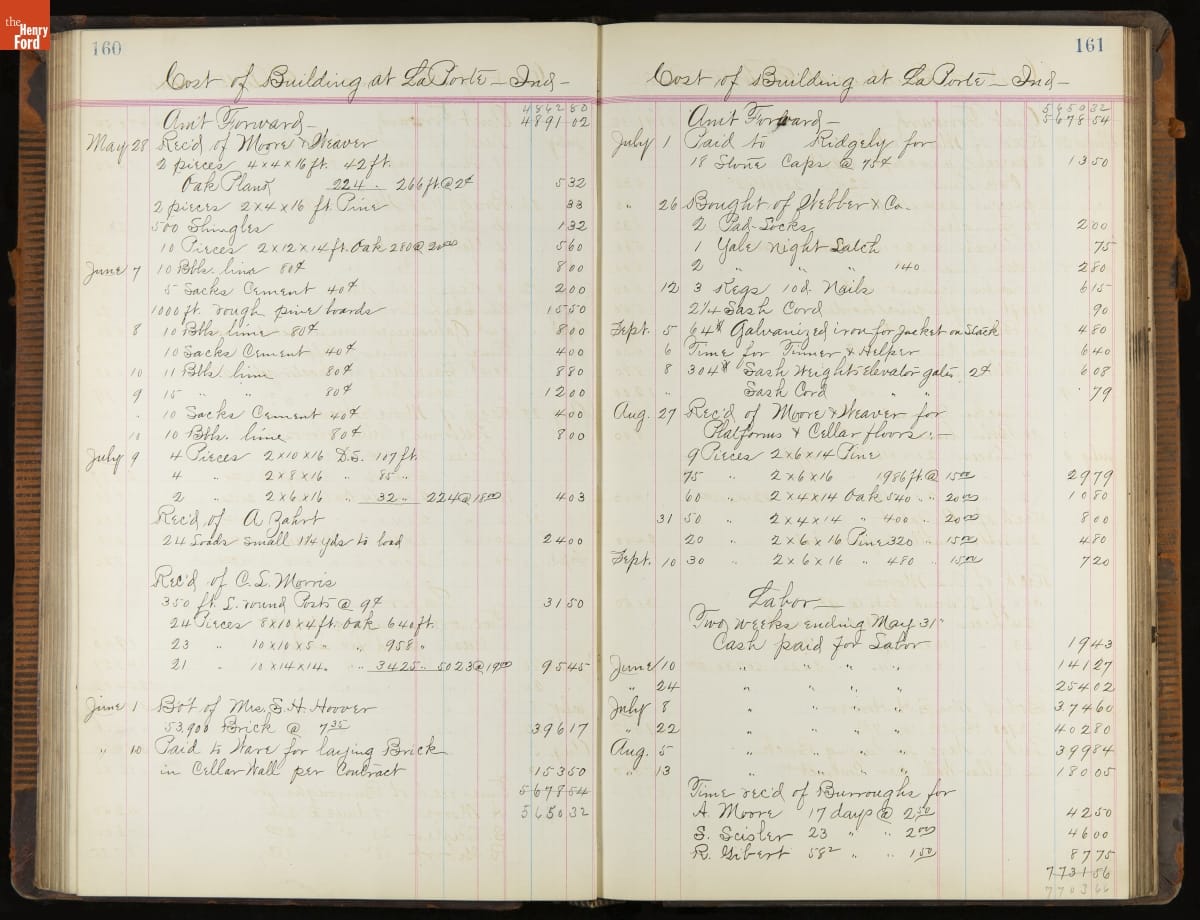 the
Henry
Ford
160
Cost of Building at LaPorte - Ind -
4862 80
Am't Forward - 4891 02
May 28 Rec'd of Moore & Weaver
2 pieces 4x4x16 ft. 42 ft.
Oak Plank 224 . 266 ft @ 2¢ 5 32
2 pieces 2x4x16 ft Pine 33
500 Shingles 1 32
10 Pieces 2x12x14 ft. Oak 280 @ 20 00 5 60
June 7 10 Bbls. lime 80¢ 8 00
5 Sacks Cement 40¢ 2 00
1000 ft. rough pine boards 15 50
8 10 Bbls. lime 80¢ 8 00
10 Sacks Cement 40¢ 4 00
10 11 Bbls. lime 80¢ 8 80
9 15 " " 80¢ 12 00
" 10 Sacks Cement 40¢ 4 00
10 10 Bbls. lime 80¢ 8 00
July 9 4 Pieces 2x10x16 D.S. 107 ft.
4 " 2x8x16 " 85 "
2 " 2x6x16 " 32 " 224 @ 18 00 4 03
Rec'd of A Zahrt
24 Loads small 1 1/4 yds to load 24 00
Rec'd of C. L. Morris
350 ft. L. round Posts @ 9¢ 31 50
24 Pieces 8x10x4 ft. Oak 640 ft.
23 " 10x10x5 " " 958 "
21 " 10x14x14 " " 3425 " 5023 @ 19 00 95 45
June 1 Bo't of Mrs. S. H. Hoover
53,900 Brick @ 7 35 396 17
" 10 Paid to Ware for laying Brick
in Cellar Wall per Contract 153 50
5678 54
5650 32
161
Cost of Building at LaPorte - Ind -
5650 32
Am't Forward - 5678 54
July 1 Paid to Ridgely for
18 Stone Caps @ 75¢ 13 50
" 26 Bought of Webber & Co.
2 Pad-Locks 2 00
1 Yale Night Latch 75
2 " " " 1 40 2 80
12 3 Kegs 10d. Nails 6 15
2 1/4 Sash Cord 90
Sept. 5 64# Galvanized iron for Jacket on Stack 4 80
6 Time for Tinner & Helper 6 40
8 304# Sash Weights elevator gates 2¢ 6 08
" Sash Cord " " 79
Aug. 27 Rec'd of Moore & Weaver for
Platforms & Cellar floors :-
9 Pieces 2x6x14 Pine
75 " 2x6x16 1986 ft. @ 15 00 29 79
60 " 2x4x14 Oak 540 " " 20 00 10 80
31 50 " 2x4x14 " 400 " 20 00 8 00
20 " 2x6x16 Pine 320 " 15 00 4 80
Sept. 10 30 " 2x6x16 " 480 " 15 00 7 20
Labor -
Two weeks ending May 31"
Cash paid for Labor 19 43
June 10 " " " " 141 27
" 24 " " " " 254 02
July 8 " " " " 374 60
" 22 " " " " 402 80
Aug. 5 " " " " 399 84
" 13 " " " " 180 05
Time rec'd of Burroughs for
A. Moore 17 days @ 2 50 42 50
S. Scisler 23 " " 2 00 46 00
R. Gibert 58 2 " " 1 50 87 75
7731 56
7703 66